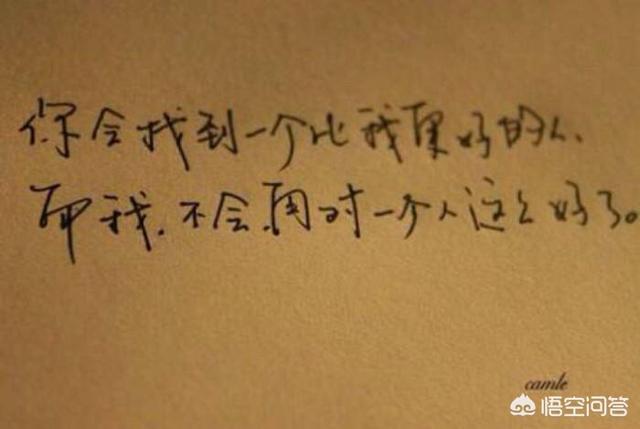 你会找到一个比我更好的人、
而我.不会.再对一个人这么好了。
camle
悟空问答